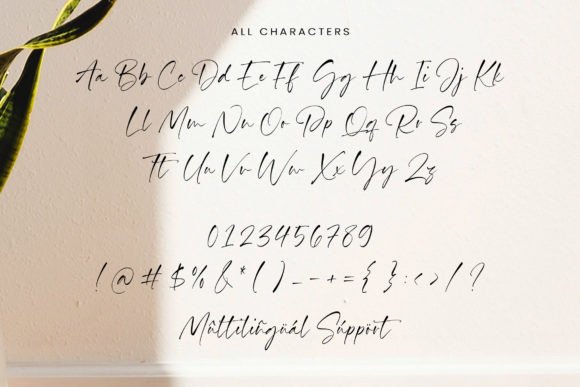 ALL CHARACTERS
Aa Bb Cc Dd Ee Ff Gg Hh Ii Jj Kk
Ll Mm Nn Oo Pp Qq Rr Ss
Tt Uu Vv Ww Xx Yy Zz
0123456789
!@#$%&*()_-+={}:<>/?
Mûltilïñgüál Súppört